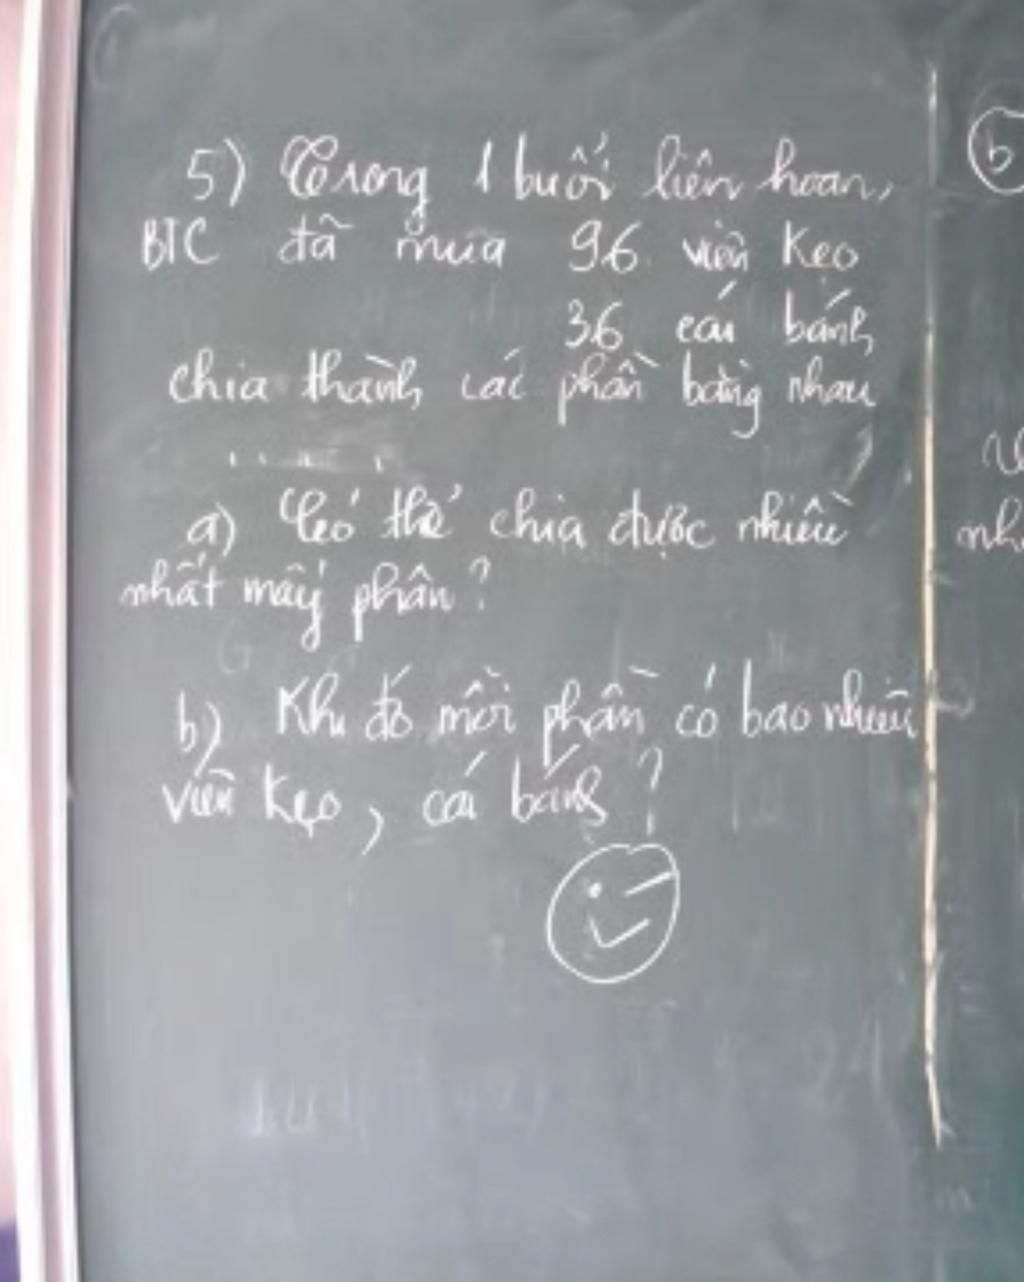 5) Trong 1 buổi liên hoan,
BTC đã mua 96 viên kẹo
36 cái bánh
chia thành các phần bằng nhau
a) Có thể chia được nhiều
nhất mấy phần?
b) Khi đó mỗi phần có bao nhiêu
viên kẹo, cái bánh?
b
nh